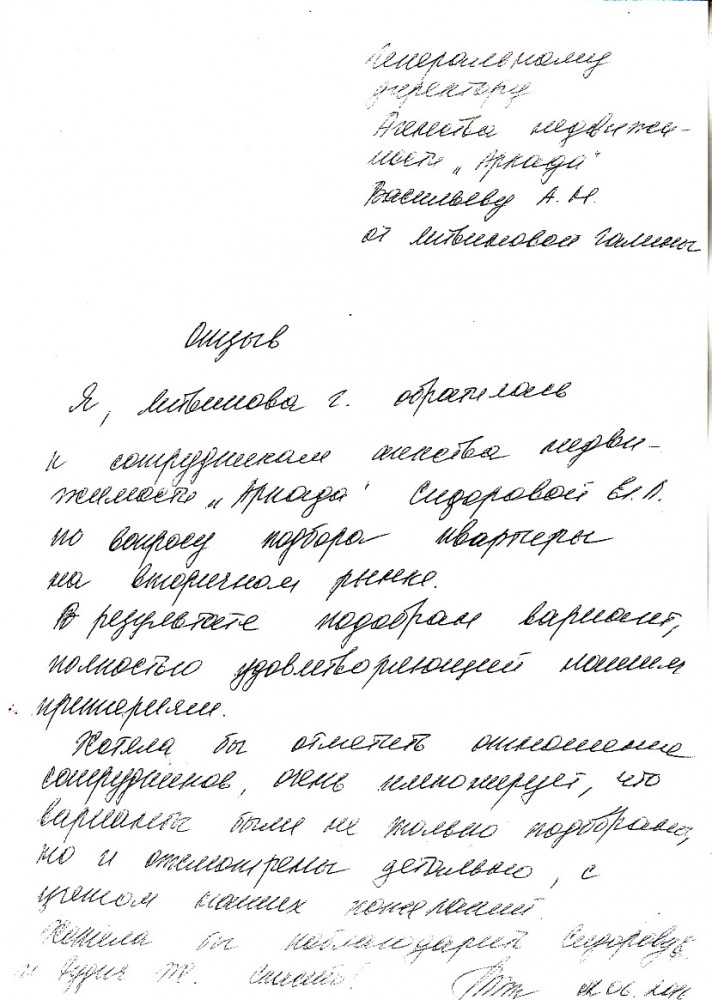 Генеральному
директору
Агенства недвижи-
мости „Аркада"
Васильеву А.М.
от Литвиновой Галины
Отзыв
Я, Литвинова Г. обратилась
к сотрудникам агенства недви-
жимости „Аркада" Сидоровой
по вопросу подбора квартиры
на вторичном рынке.
В результате подобран вариант,
полностью удовлетворяющий нашим
критериям.
Хотела бы отметить отношение
сотрудников, очень импонирует, что
варианты были не только подобраны,
но и отсмотрены детально, с
учетом наших пожеланий.
Хотела бы поблагодарить Сидорову
и Спасибо!